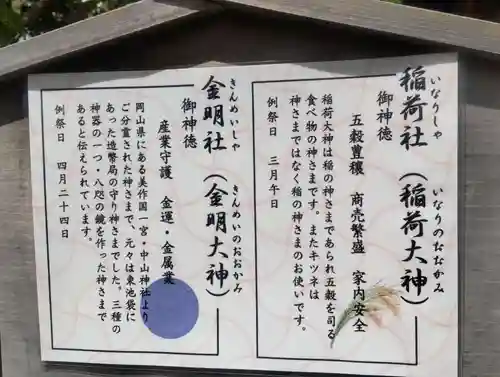 稲荷社（稲荷大神）
いなりしゃ いなりのおおかみ
御神徳
五穀豊穣 商売繁盛 家内安全
稲荷大神は稲の神さまであられ五穀を司る
食べ物の神さまです。またキツネは
神さまではなく稲の神さまのお使いです。
例祭日 三月午日
金明社（金明大神）
きんめいしゃ きんめいのおおかみ
御神徳
産業守護 金運・金属業
岡山県にある美作国一宮・中山神社より
ご分霊された神さまで、元々は東池袋に
あった造幣局の守り神さまでした。三種の
神器の一つ・八咫の鏡を作った神さまで
あると伝えられています。
例祭日 四月二十四日